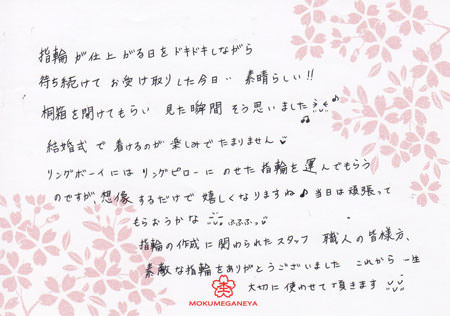 指輪が仕上がる日をドキドキしながら
待ち続けてお受け取りした今日‥ 素晴らしい!!
桐箱を開けてもらい 見た瞬間 そう思いました♪
結婚式で着けるのが楽しみでたまりません
リングボーイにはリングピローにのせた指輪を運んでもらう
のですが、想像するだけで嬉しくなりますね♪当日は頑張って
もらおうかな ふふふっ
指輪の作成に関わられたスタッフ 職人の皆様方、
素敵な指輪をありがとうございました これから一生
大切に使わせて頂きます
MOKUMEGANEYA